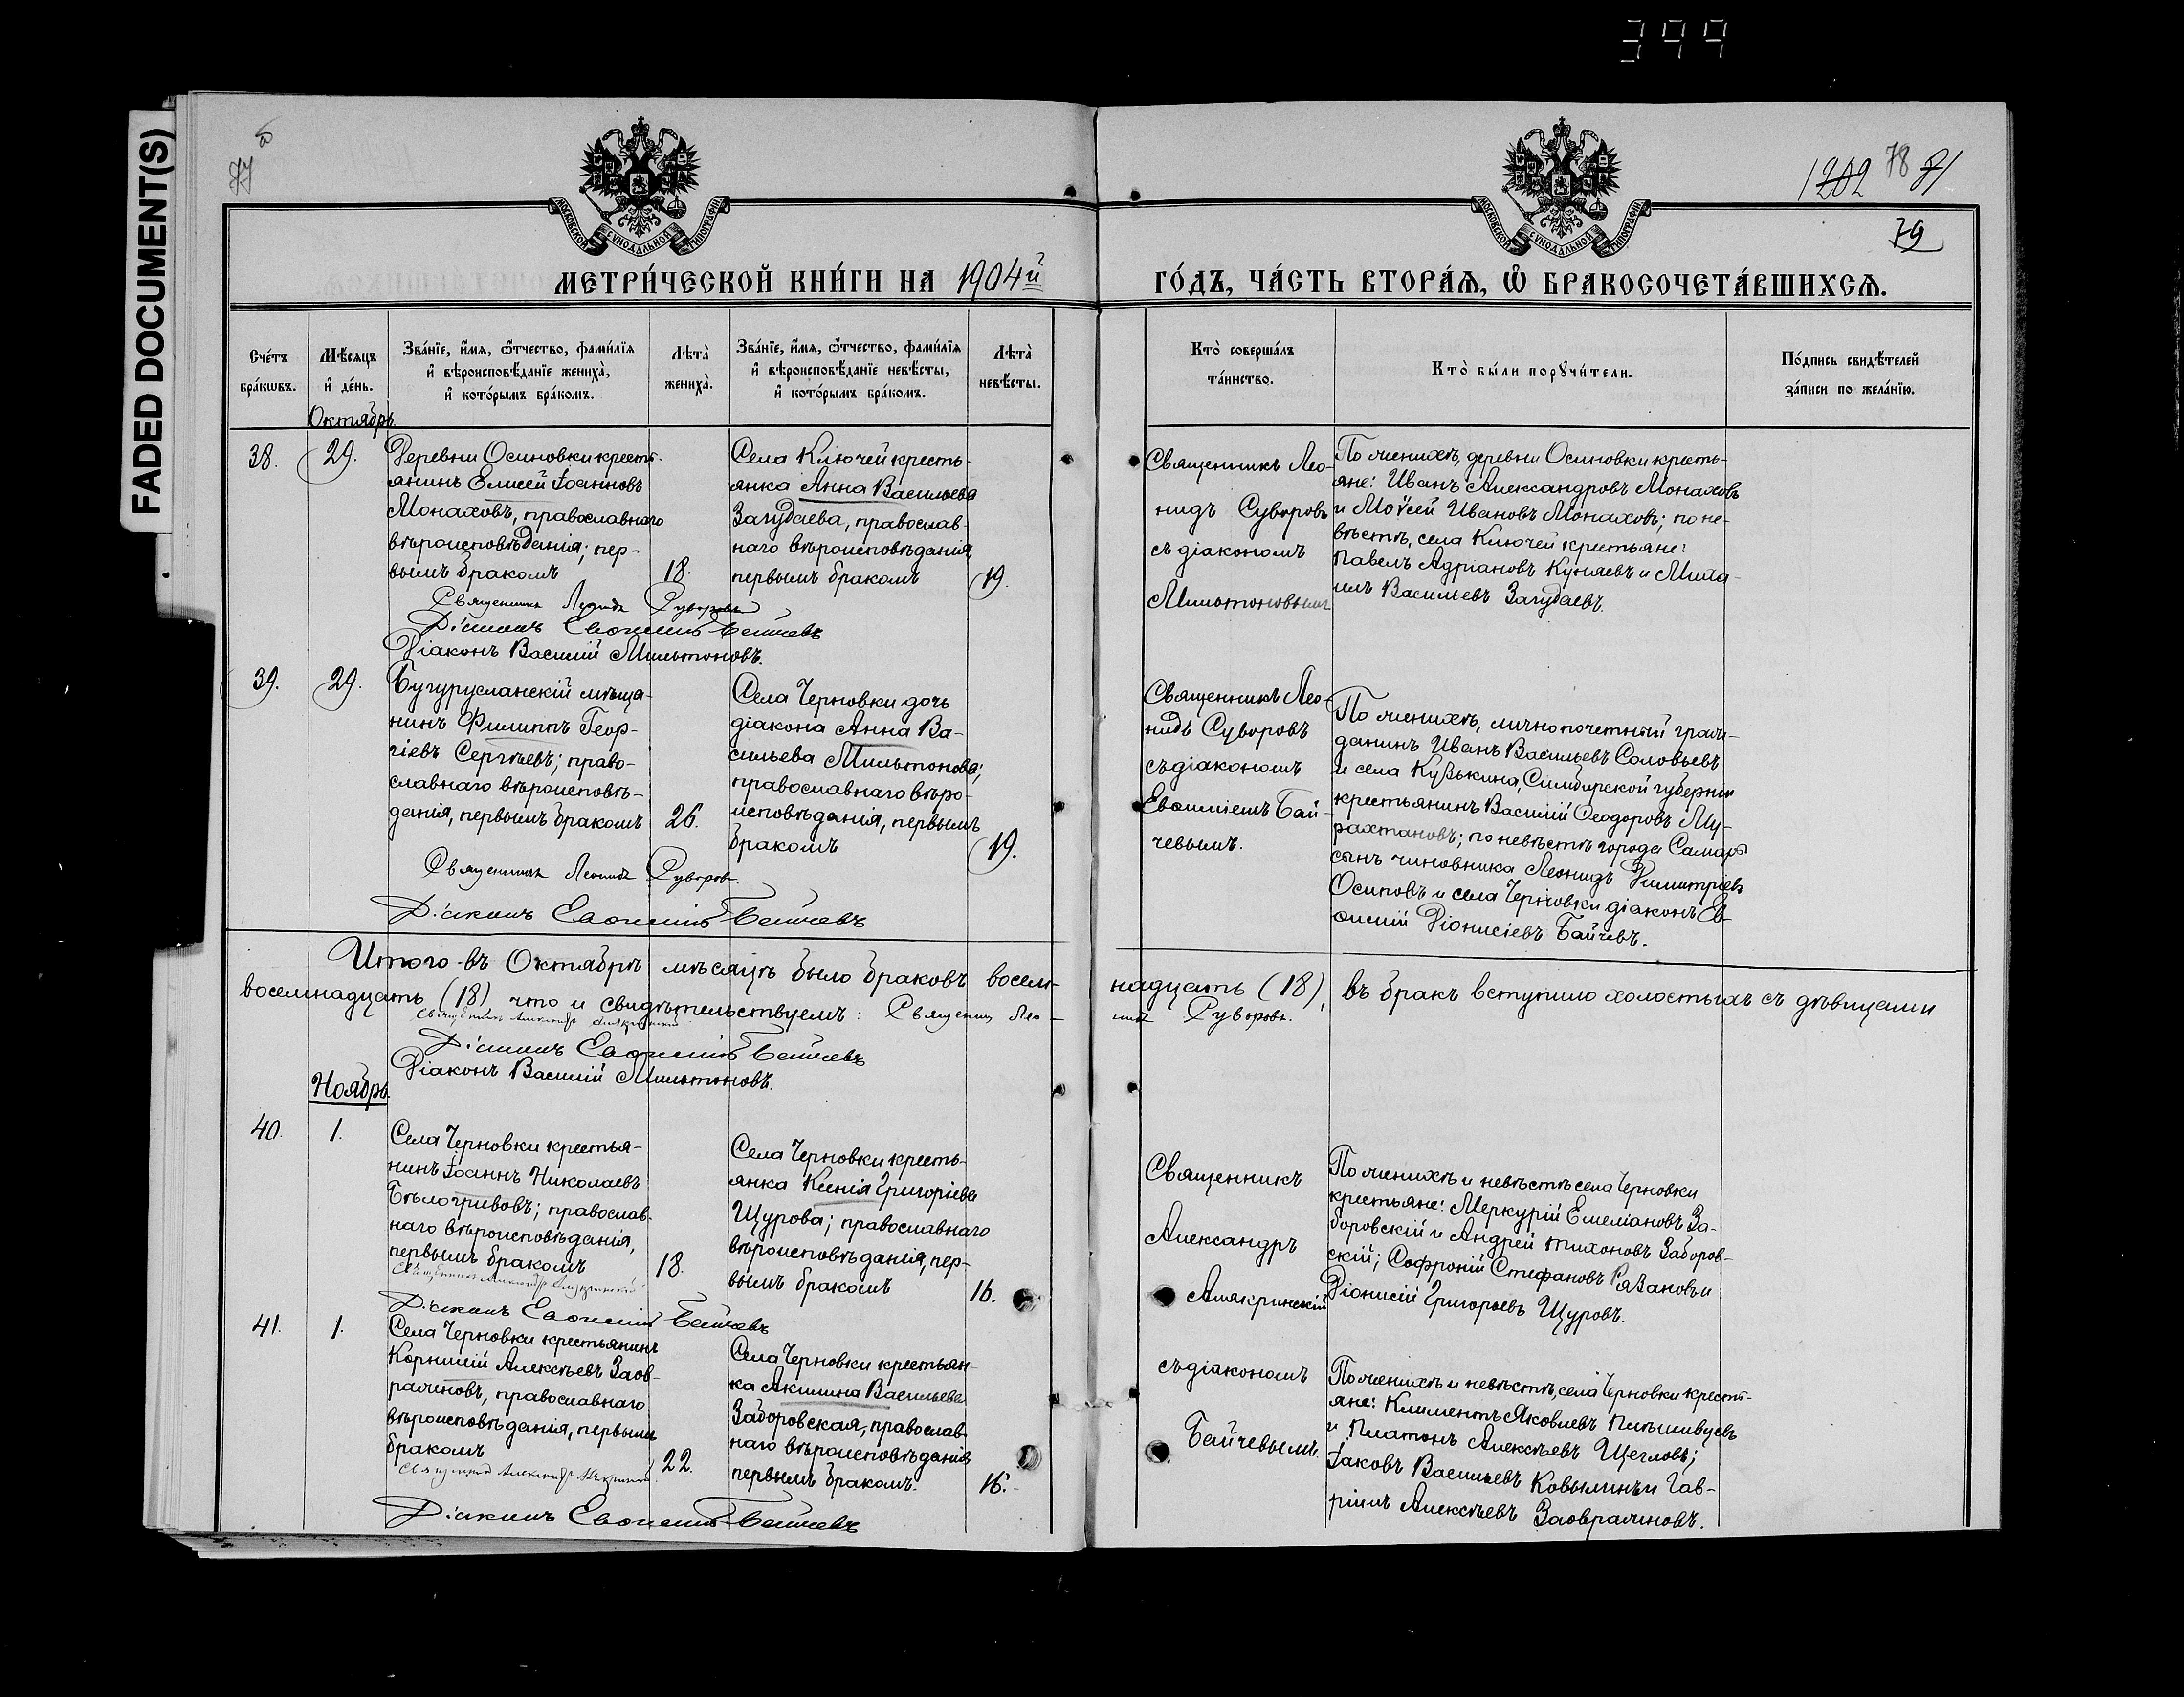 399
FADED DOCUMENT(S)
1202 78 71
79
МОСКОВСКОЙ СѴНОДАЛЬНОЙ ТИПОГРАФІИ
МОСКОВСКОЙ СѴНОДАЛЬНОЙ ТИПОГРАФІИ
МЕТРИ́ЧЕСКОЙ КНИ́ГИ НА 1904й
ГО́ДЪ, ЧА́СТЬ ВТОРА́Ѧ, Ѽ БРАКОСОЧЕТА́ВШИХСѦ.
Сче́тъ бра́кѡвъ.
Мѣ́сѧцъ и҆ де́нь.
Зва́нїе, и҆́мѧ, ѻ҆́тчество, фами́лїѧ
и҆ вѣроисповѣ́данїе жениха̀,
и҆ кото́рымъ бра́комъ.
Лѣта̀ жениха̀.
Зва́нїе, и҆́мѧ, ѻ҆́тчество, фами́лїѧ
и҆ вѣроисповѣ́данїе невѣ́сты,
и҆ кото́рымъ бра́комъ.
Лѣта̀ невѣ́сты.
Кто̀ соверша́лъ та́инство.
Кто̀ бы́ли порꙋчи́тели.
По́дпись свидѣ́телей
за́писи по жела́нїю.
Октябрь
38.
29.
Деревни Осиновки кресть-
янинъ Елисей Іоанновъ
Монаховъ, православнаго
вѣроисповѣданія; пер-
вымъ бракомъ
18.
Села Ключей кресть-
янка Анна Васильева
Загудаева, православ-
наго вѣроисповѣданія,
первымъ бракомъ
19.
Священникъ Лео-
нидъ Суворовъ
съ діакономъ
Мильтоновымъ
По женихѣ, деревни Осиновки кресть-
яне: Иванъ Александровъ Монаховъ
и Моѵсей Ивановъ Монаховъ; по не-
вѣстѣ, села Ключей крестьяне:
Павелъ Адріановъ Куняевъ и Миха-
илъ Васильевъ Загудаевъ.
Священникъ Леонидъ Суворовъ
Діаконъ Евѳимій Байчевъ
Діаконъ Василій Мильтоновъ.
39.
29.
Бугурусланскій мѣща-
нинъ Филиппъ Геор-
гіевъ Сергѣевъ; право-
славнаго вѣроисповѣ-
данія, первымъ бракомъ
26.
Села Черновки дочь
діакона Анна Ва-
сильева Мильтонова;
православнаго вѣро-
исповѣданія, первымъ
бракомъ
19.
Священникъ Лео-
нидъ Суворовъ
съ діакономъ
Евѳиміемъ Бай-
чевымъ.
По женихѣ, лично почетный граж-
данинъ Иванъ Васильевъ Соловьевъ
и села Кузькина, Симбирской губерніи
крестьянинъ Василій Ѳеодоровъ Му-
рахтановъ; по невѣстѣ города Самары
сынъ чиновника Леонидъ Димитріевъ
Осиповъ и села Черновки діаконъ Ев-
ѳимій Діонисіевъ Байчевъ.
Священникъ Леонидъ Суворовъ.
Діаконъ Евѳимій Байчевъ
Итого въ Октябрѣ мѣсяцѣ было браковъ восем-
надцать (18), въ бракъ вступило холостыхъ съ дѣвицами
восемнадцать (18), что и свидѣтельствуемъ: Священникъ Лео-
нидъ Суворовъ.
Священникъ Александръ Амякринскій
Діаконъ Евѳимій Байчевъ
Діаконъ Василій Мильтоновъ.
Ноябрь.
40.
1.
Села Черновки крестья-
нинъ Іоаннъ Николаевъ
Бѣлогривовъ; православ-
наго вѣроисповѣданія,
первымъ бракомъ
18.
Села Черновки кресть-
янка Ксенія Григоріева
Щурова; православнаго
вѣроисповѣданія, пер-
вымъ бракомъ
16.
Священникъ
Александръ
Амякринскій
По женихѣ и невѣстѣ села Черновки
крестьяне: Меркурій Емеліановъ За-
боровскій и Андрей Тихоновъ Заборов-
скій; Софроній Стефановъ Рязановъ и
Діонисій Григорьевъ Щуровъ.
Священникъ Александръ Амякринскій
Діаконъ Евѳимій Байчевъ
41.
1.
Села Черновки крестьянинъ
Корнилій Алексѣевъ Заов-
ражновъ, православнаго
вѣроисповѣданія, первымъ
бракомъ
22.
Села Черновки крестьян-
ка Акилина Васильева
Заборовская, православ-
наго вѣроисповѣданія
первымъ бракомъ.
16.
съ діакономъ
Байчевымъ.
По женихѣ и невѣстѣ, села Черновки кресть-
яне: Климентъ Яковлевъ
и Платонъ Алексѣевъ Щегловъ;
Іаковъ Васильевъ Ковылинъ и Гав-
ріилъ Алексѣевъ Заовражновъ.
Священникъ Александръ Амякринскій
Діаконъ Евѳимій Байчевъ